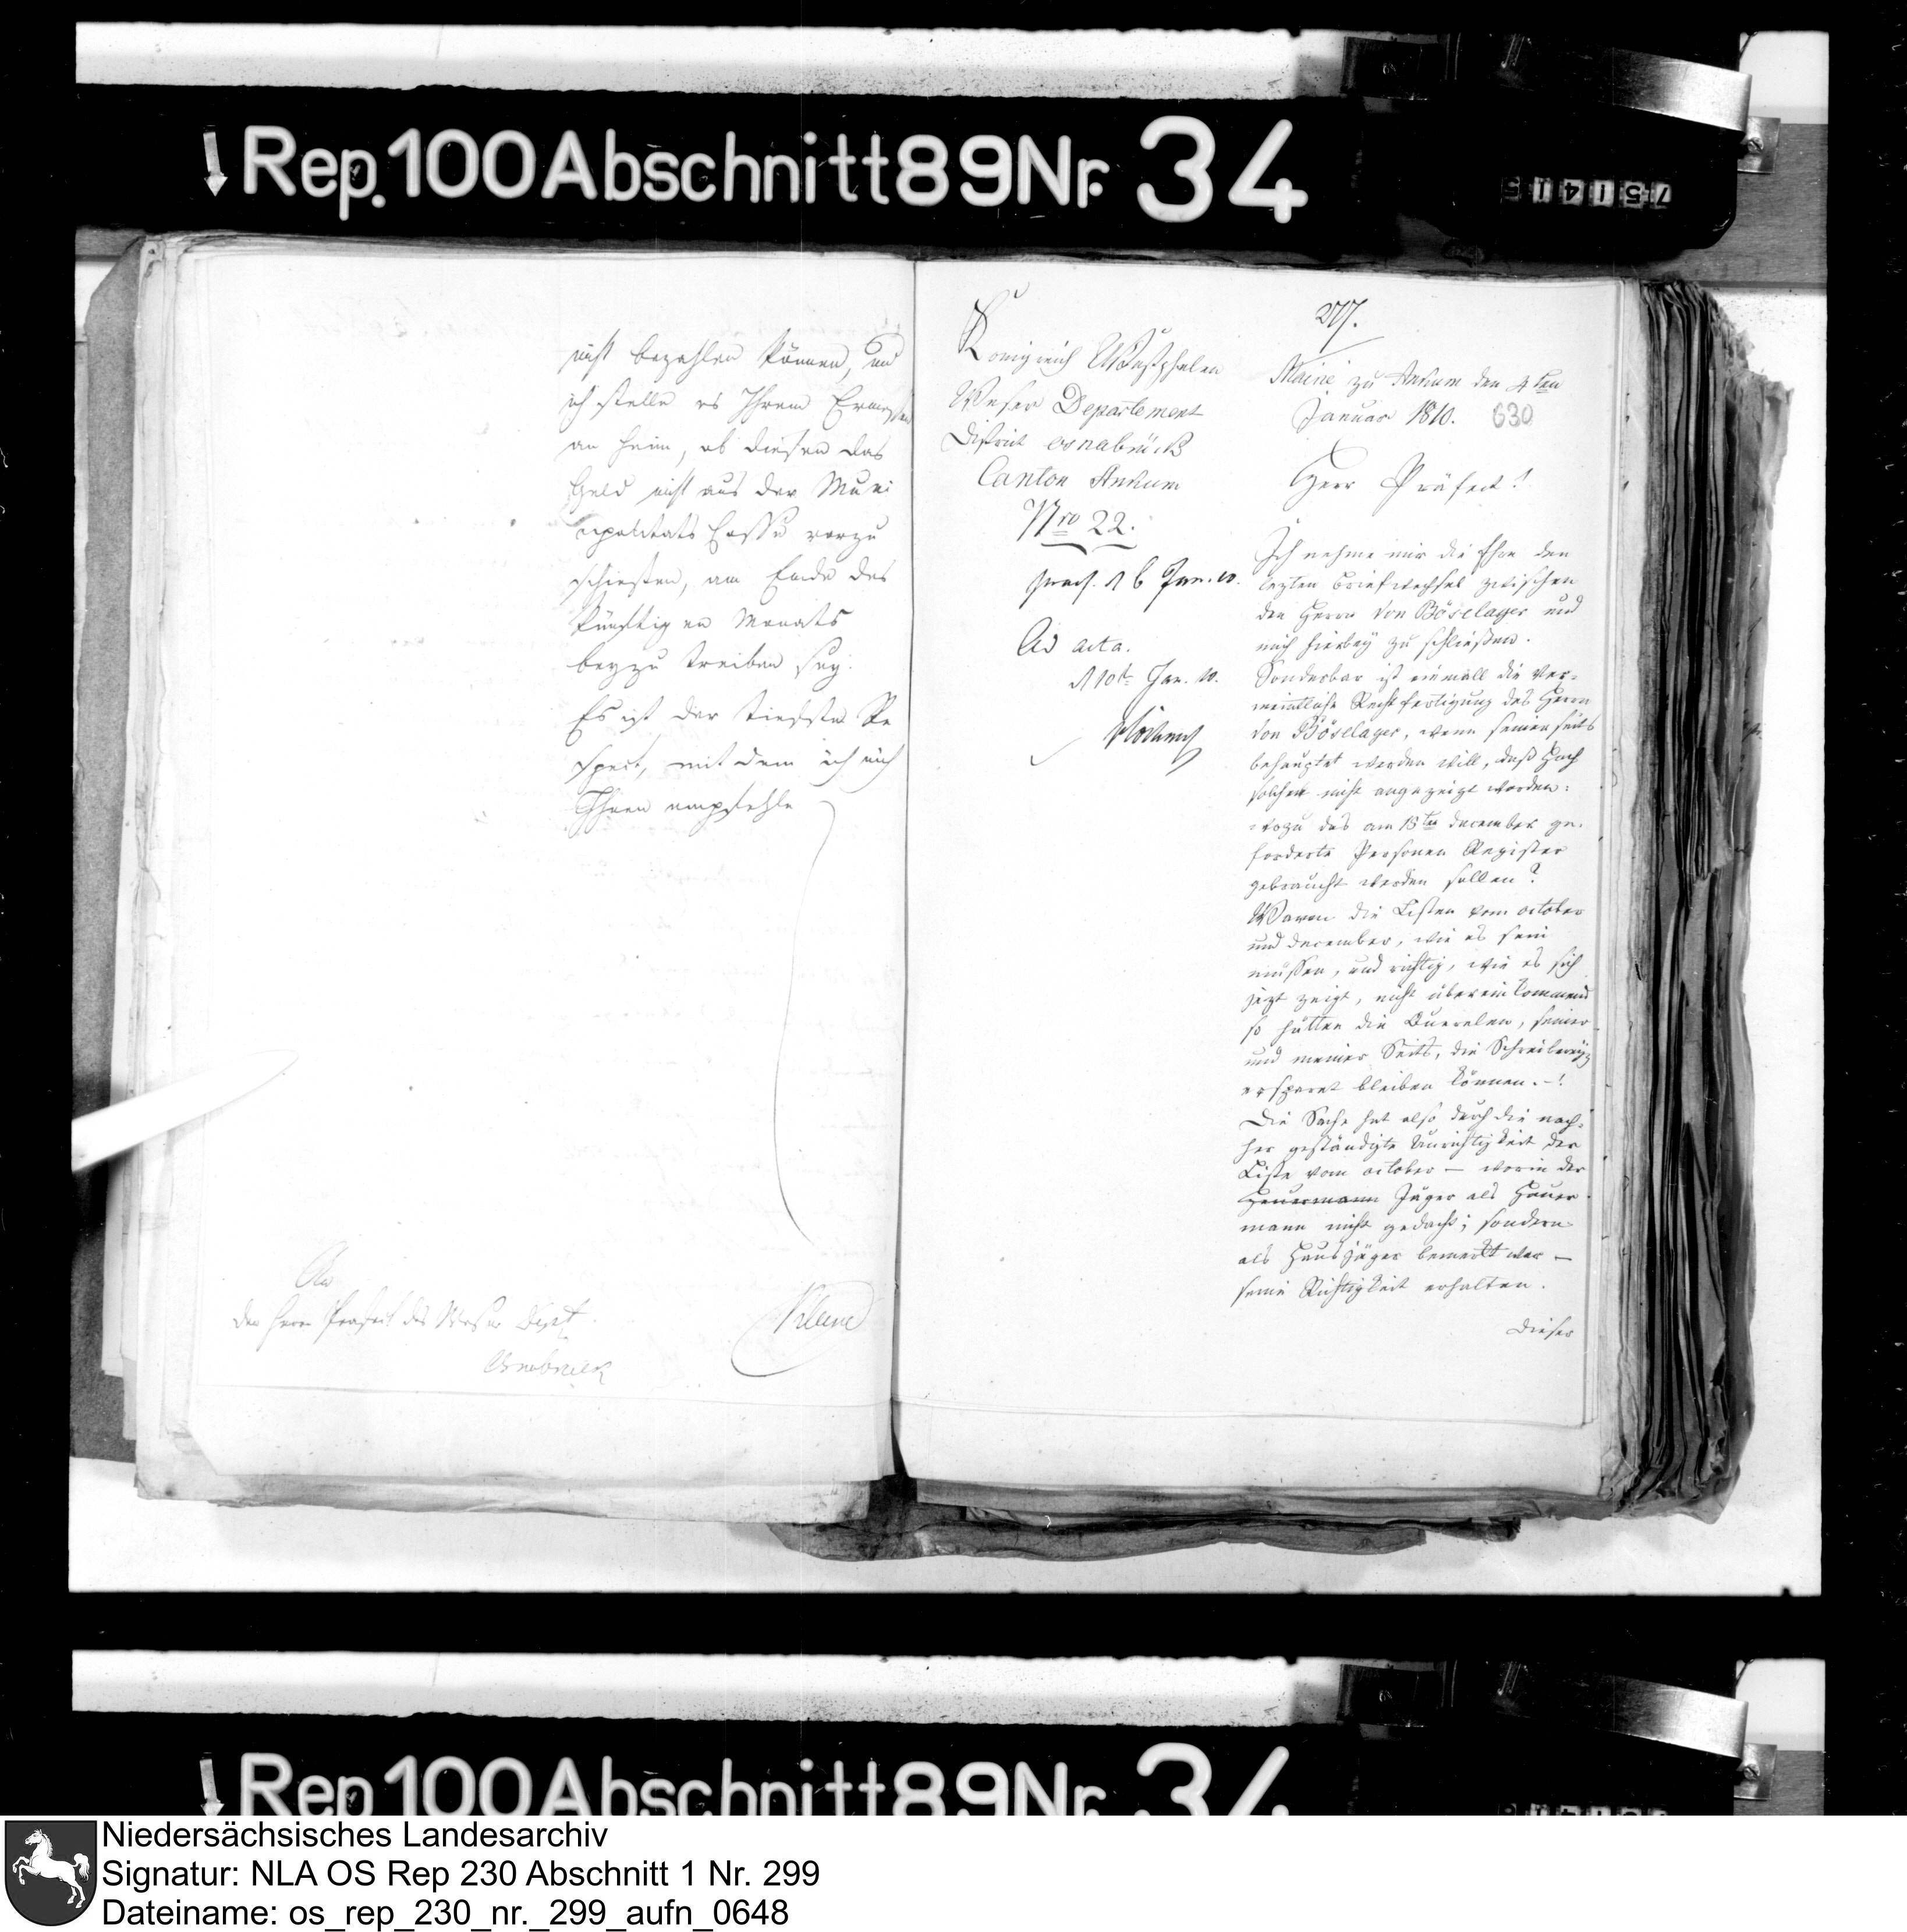 Rep. 100 Abschnitt 89 Nr. 34
751415
nicht bezahlen können, und
ich stelle es Ihrem Ermessen
an heim, ob diesen das
Geld nicht aus der Muni
cipalitäts Casse vorzu
schießen, am Ende des
künftigen Monats
beyzutreiben sey.
Es ist der tiefste Re
spect, mit dem ich mich
Ihnen empfehle
An
den Herrn Praefect des Weser Dept.
Osnabrück
Königreich Westphalen
Weser Departement
District Osnabrück
Canton Ankum
Nro 22.
praes. d 6 Jan. 10.
Ad acta.
d 10t Jan. 10.
Mairie zu Ankum den 4ten
Januar 1810. 630
Herr Präfect!
Ich nehme mir die Ehre den
lezten Briefwechsel zwischen
den Herrn von Böselager und
mich hierbey zu schließen.
Sonderbar ist einmall die ver-
meintliche Rechtfertigung des Herrn
von Böselager, wenn seiner seits
behauptet werden will, daß Hoch
solchen nicht angezeigt worden:
wozu das am 18ten december ge-
forderte Personen Register
gebraucht werden sollen?
Waren die Listen vom october
und december, wie es sein
müssen, und richtig, wie es sich
jezt zeigt, nicht übereinkommend
so hätten die Querelen, seiner
und meiner Seits, die Schreibereyen
ersparet bleiben können. -!
Die Sache hat also durch die nach-
her geständigte Unrichtigkeit der
Liste vom october — worin der
Heuermann Jäger als Heuer
mann nicht gedacht; sondern
als Hausjäger bemerkt war —
seine Richtigkeit erhalten.
Dieser
Rep 100 Abschnitt 89 Nr. 34
Niedersächsisches Landesarchiv
Signatur: NLA OS Rep 230 Abschnitt 1 Nr. 299
Dateiname: os_rep_230_nr._299_aufn_0648